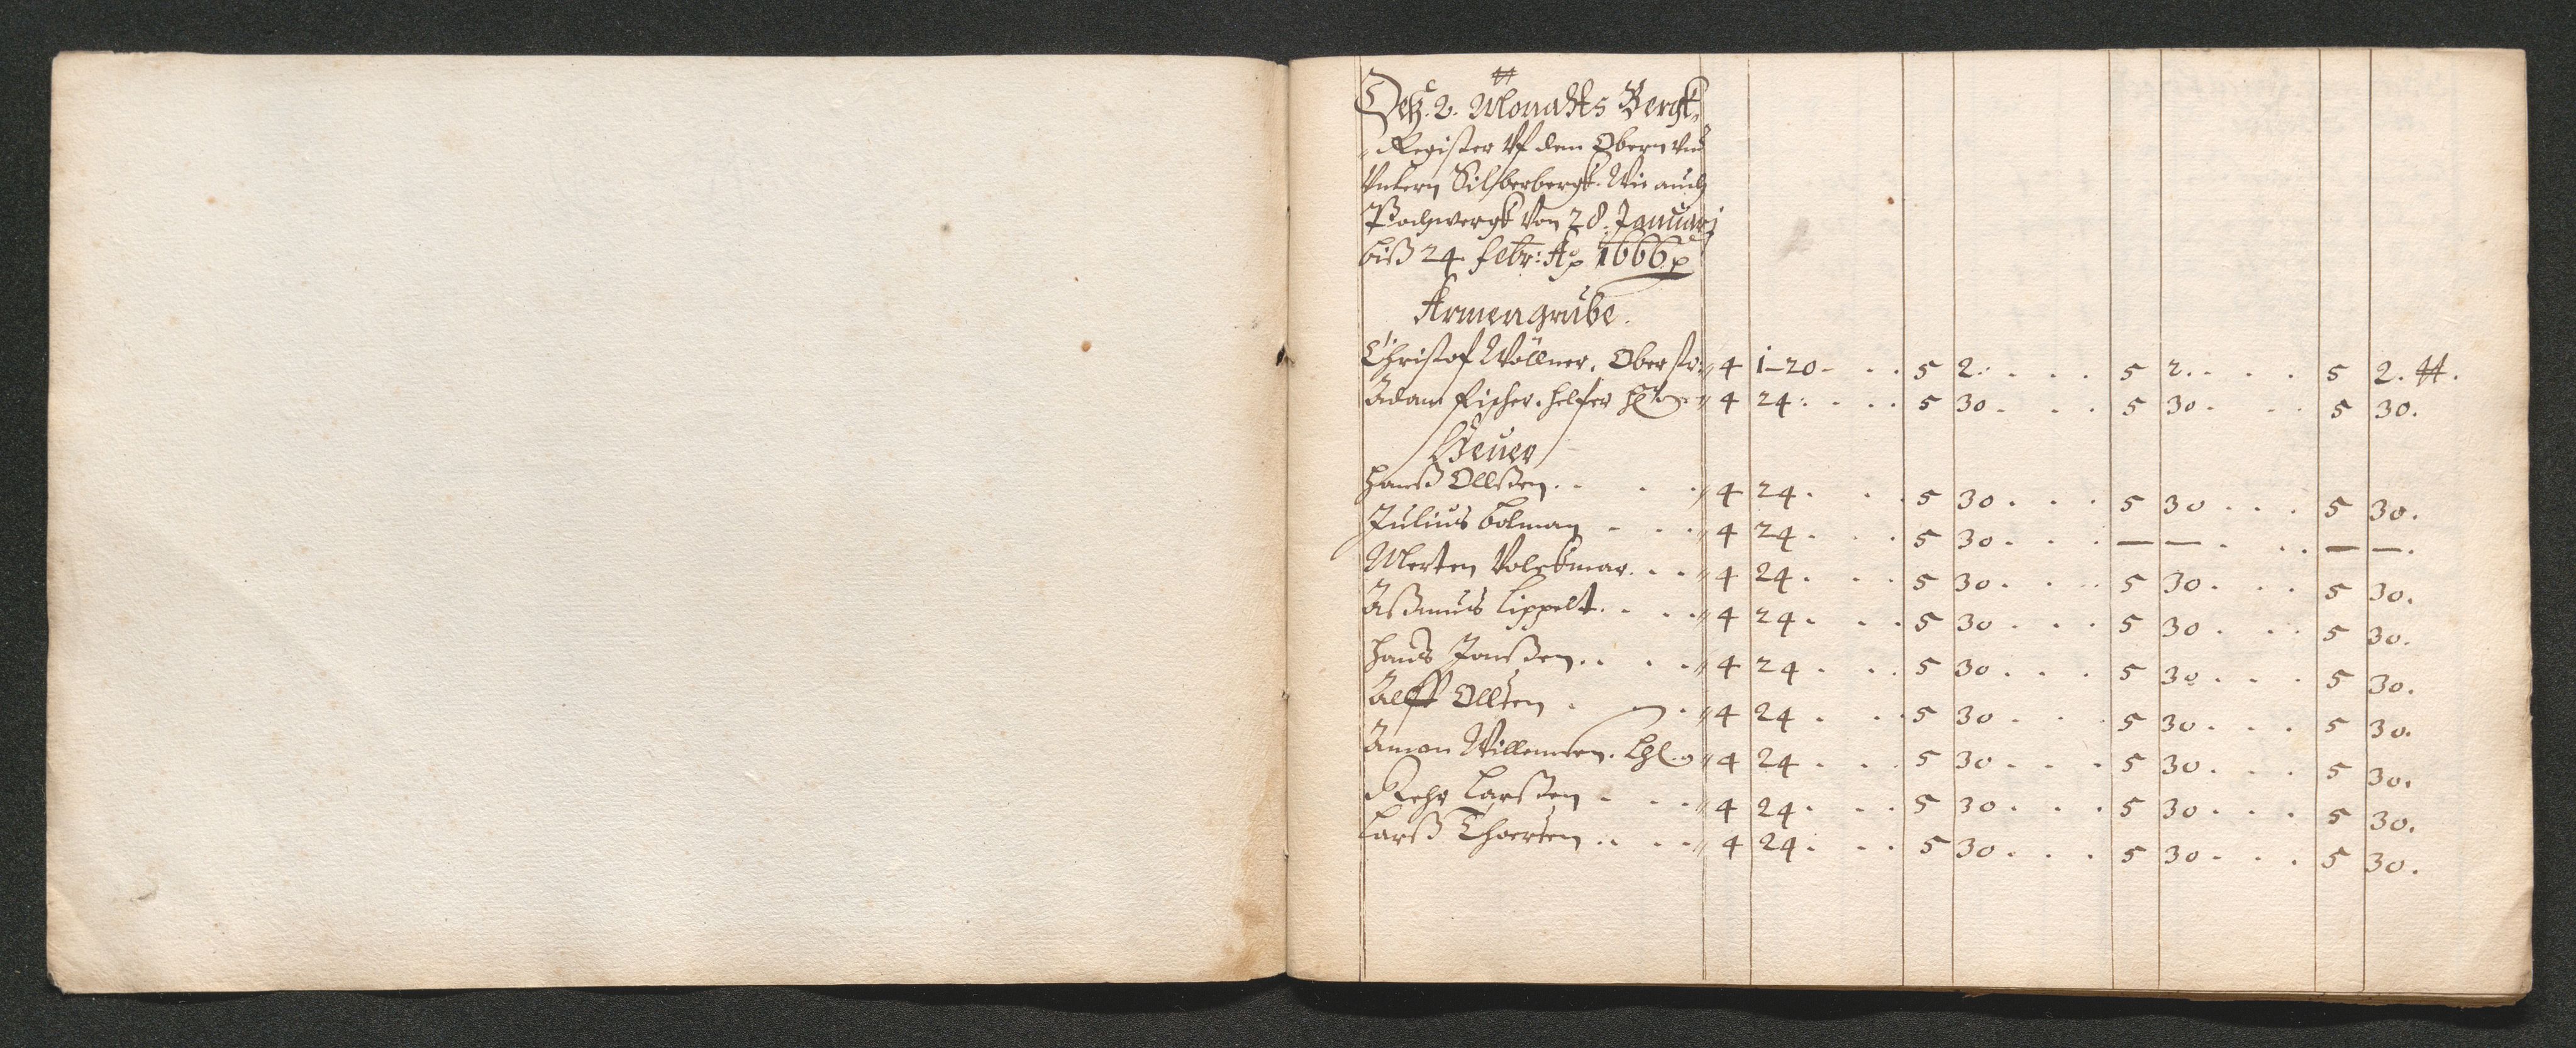 Deß. 2. Monahts Bergk-
Register Vf dem Obern vnd
Vntern Silberbergk. Wie auch
Pochwergk Von 28. Januarj
biß 24. febr: Ao 1666
Armengrube.
Christof Wöllner. Oberstr: 4 1-20 - . . 5 2. . . . 5 2. . . . 5 2. #.
Adam Fischer. helfer 4 24: . . . 5 30. . . 5 30. . . 5 30.
Heüer
Hanß Ollßen . . . 4 24. . . 5 30. . . 5 30 . . . 5 30.
Julius Bolman - . . 4 24. . . 5 30. . . — —. . . — —.
Merten Volckmar. . . 4 24. . . 5 30. . . 5 30. . . 5 30.
Aßmus Lippelt. . . 4 24. . . 5 30. . . 5 30. . . 5 30.
Hans Janßen. . . . 4 24. . . 5 30. . . 5 30. . . 5 30.
Alff Ollsen . . 4 24. . . 5 30. . . 5 30. . . 5 30.
Amon Willemsen. 4 24. . . 5 30. . . 5 30. . . 5 30.
Pehr Larßen . . . 4 24. . . 5 30. . . 5 30. . . 5 30.
Larß Thorsen . . . 4 24. . . 5 30. . . 5 30. . . 5 30.